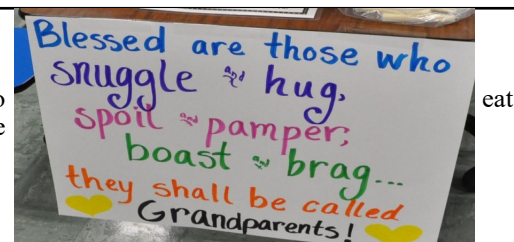 Blessed are those who
snuggle and hug,
spoil and pamper;
boast and brag...
they shall be called
Grandparents!
eat